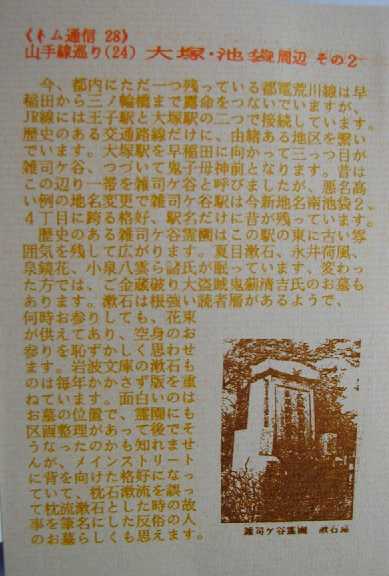 《トム通信 28》
山手線巡り(24) 大塚・池袋周辺 その2
今、都内にただ一つ残っている都電荒川線は早
稲田から三ノ輪橋まで露命をつないでいますが、
JR線には王子駅と大塚駅の二つで接続しています。
歴史のある交通路線だけに、由緒ある地区を繋い
でいます。大塚駅を早稲田に向かって三っつ目が
雑司ケ谷、つづいて鬼子母神前となります。昔は
この辺り一帯を雑司ケ谷と呼びましたが、悪名高
い例の地名変更で雑司ケ谷駅は今新地名南池袋2、
4丁目に跨る格好、駅名だけに昔が残っています。
歴史のある雑司ケ谷霊園はこの駅の東に古い雰
囲気を残して広がります。夏目漱石、永井荷風、
泉鏡花、小泉八雲ら諸氏が眠っています、変わっ
た方では、ご金蔵破り大盗賊鬼薊清吉氏のお墓も
あります。漱石は根強い読者層があるようで、
何時お参りしても、花束
が供えてあり、空身のお
参りを恥ずかしく思わせ
ます。岩波文庫の漱石も
のは毎年かかさず版を重
ねています。面白いのは
お墓の位置で、霊園にも
区画整理があって後でそ
うなったのかも知れませ
んが、メインストリート
に背を向けた格好になっ
ていて、枕石漱流を誤っ
て枕流漱石とした時の故
事を筆名にした反俗の人
のお墓らしくも思えます。
雑司ケ谷霊園 漱石墓